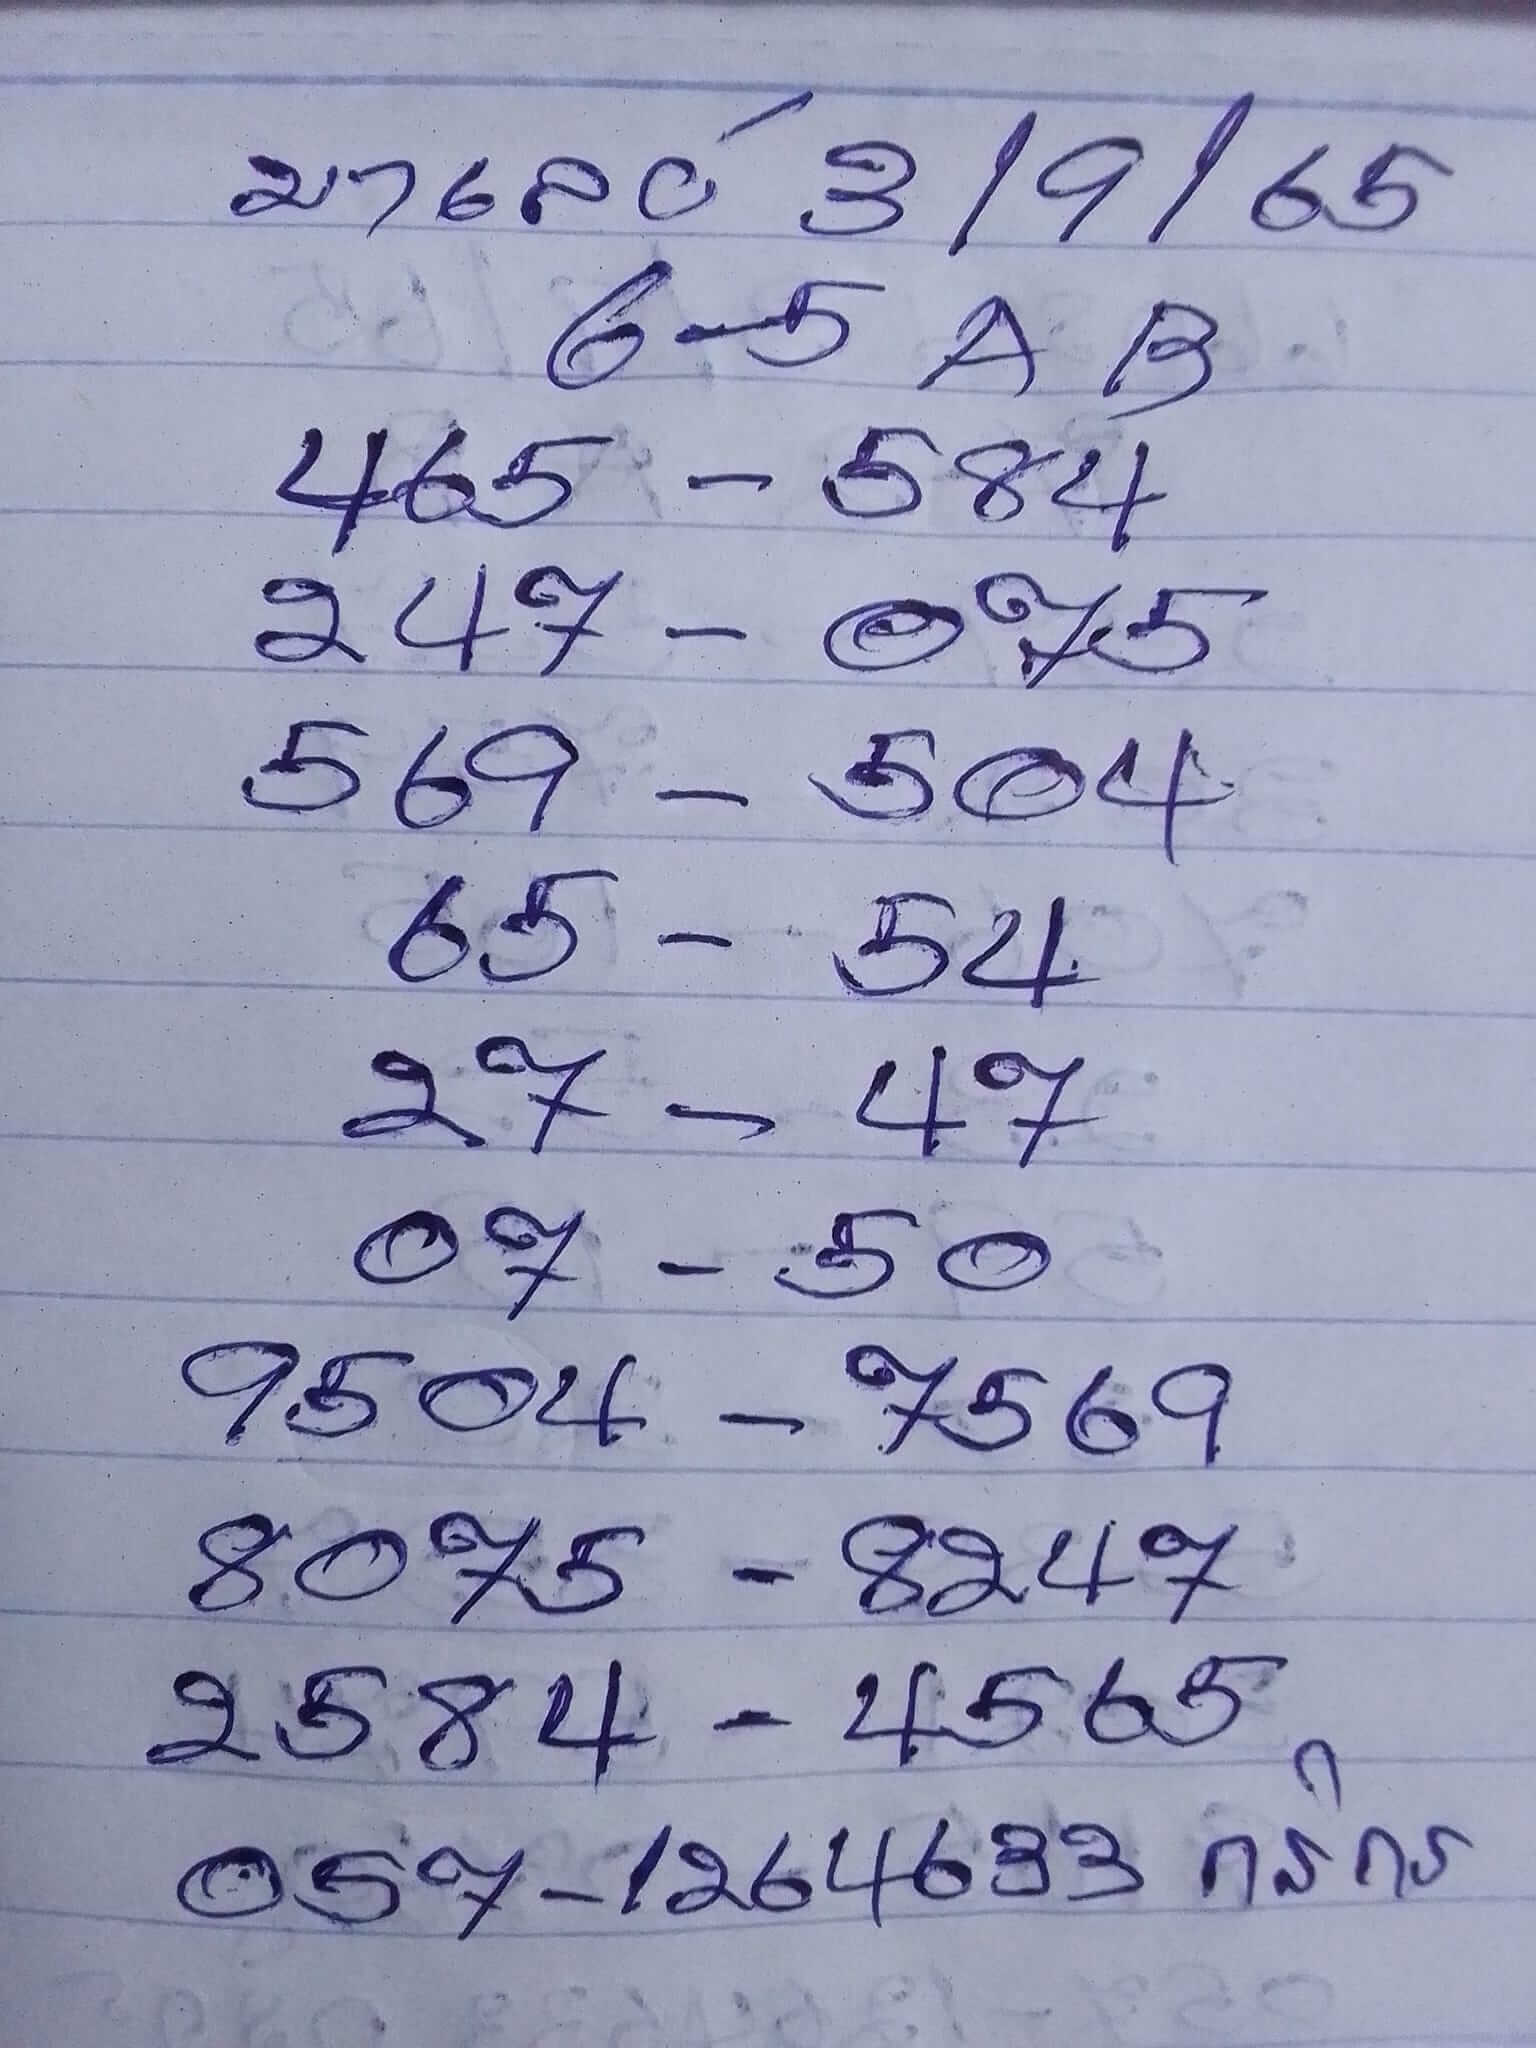 มาเลย์ 3/9/65
6-5 AB
465 - 584
247 - 075
569 - 504
65 - 54
27 - 47
07 - 50
9504 - 7569
8075 - 8247
2584 - 4565
057-1264633